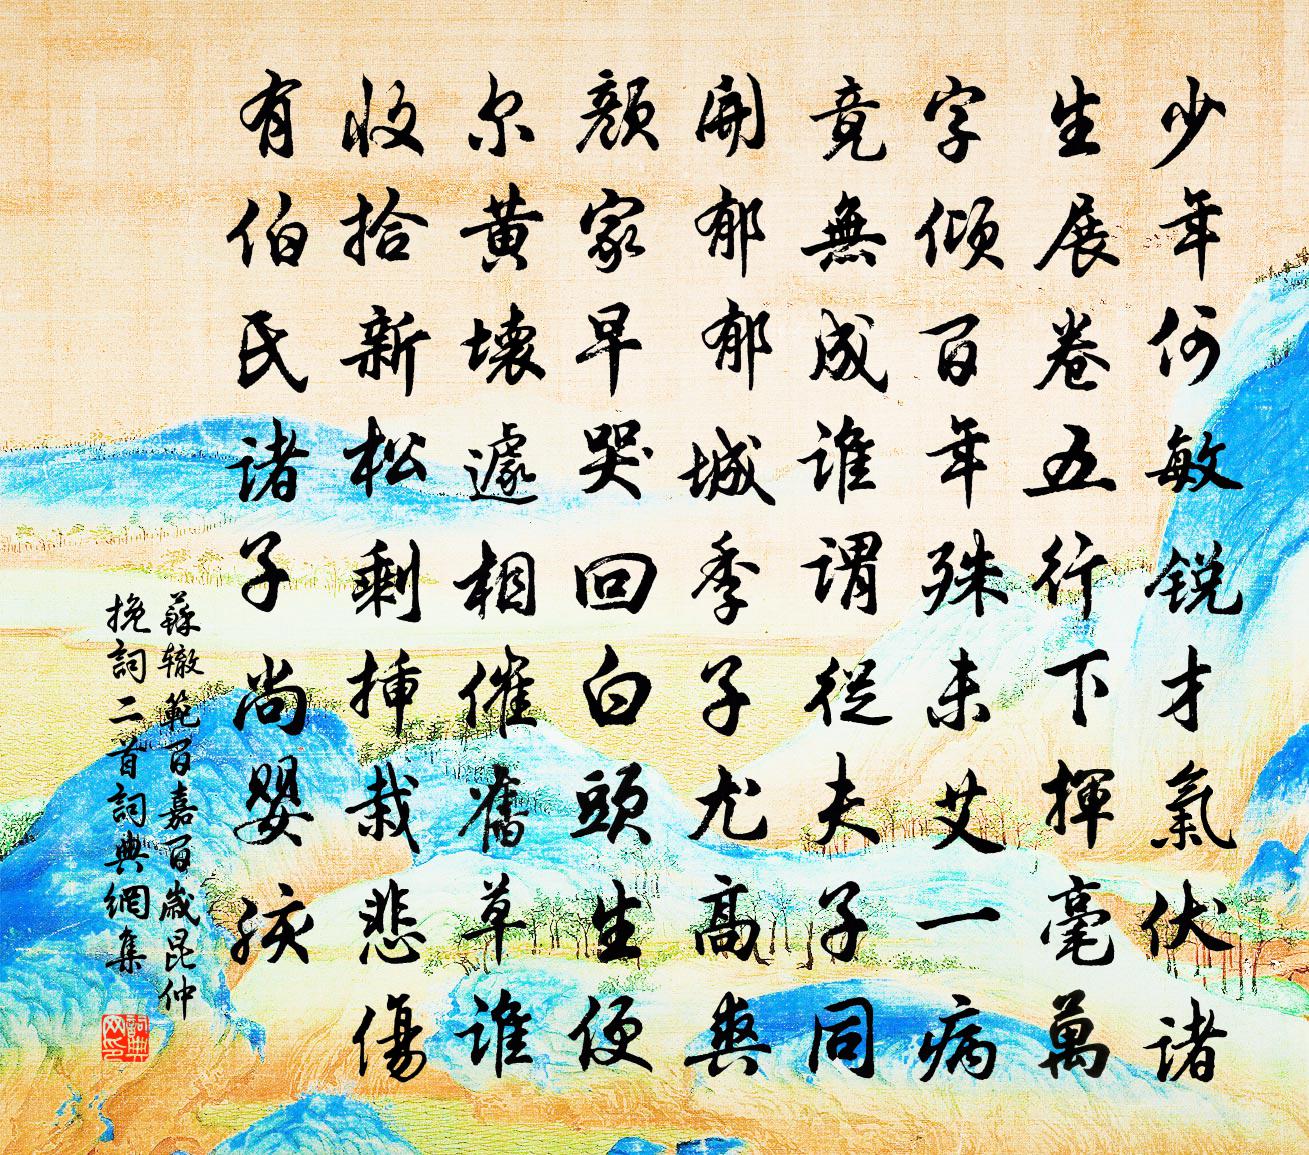 少年何敏锐才氣伏诸
生展卷五行下揮毫萬
字倾百年殊未艾一病
竟無成谁谓從夫子同
開郁郁城季子尤高爽
颜家早哭回白頭生便
尔黄壤遽相催舊草谁
收拾新松剩插栽悲傷
有伯氏诸子尚嬰孩
蘇辙範百嘉百歲昆仲
挽詞二首詞典網集
詞典